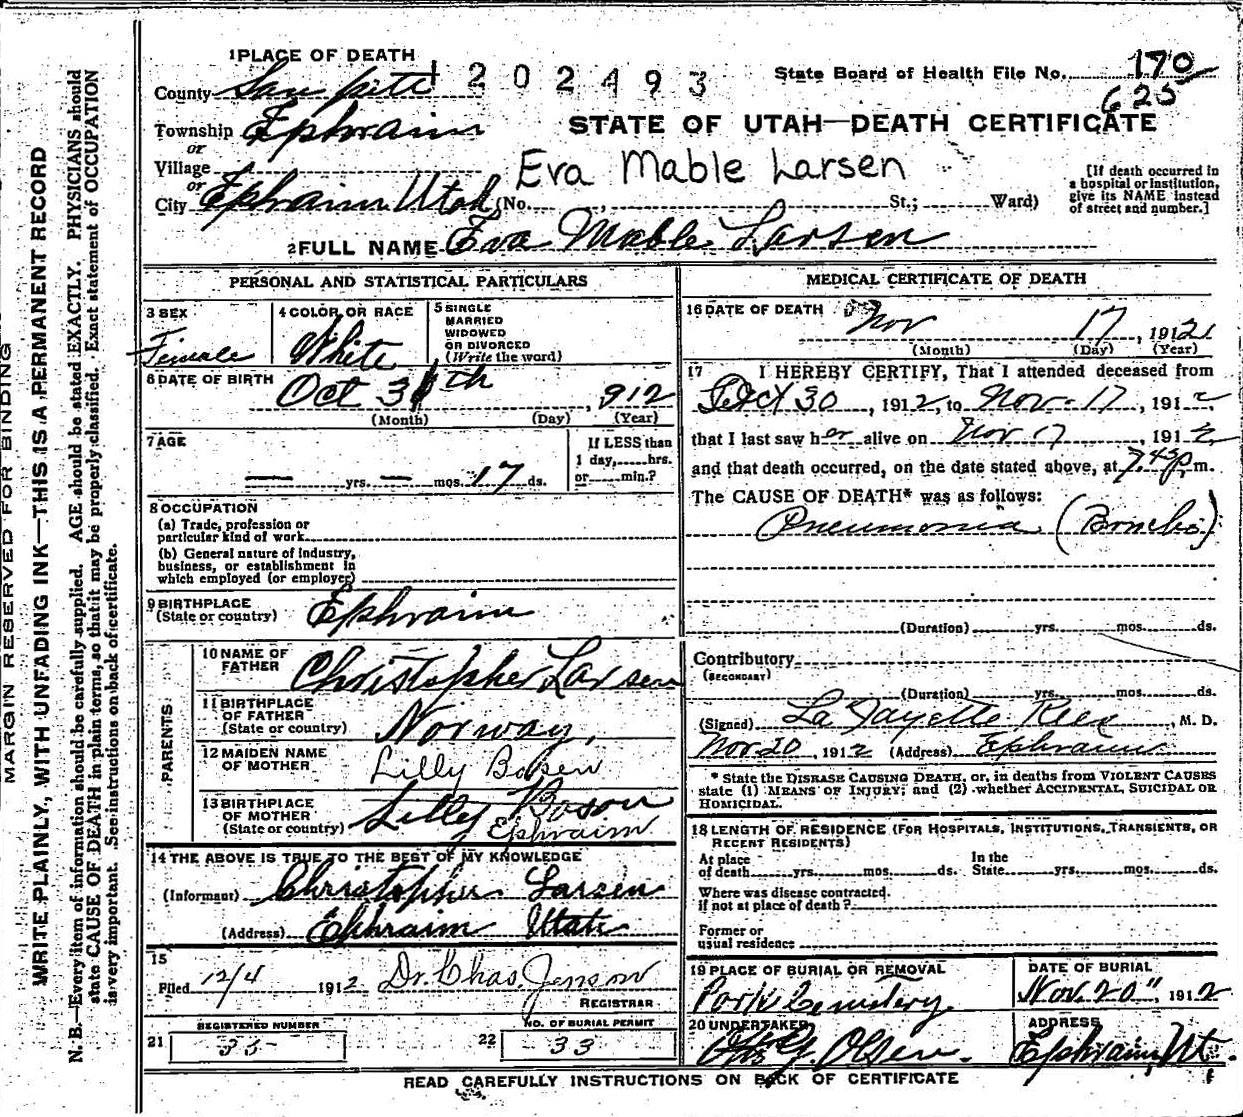 1 PLACE OF DEATH
1202493
State Board of Health File No. 170
County San pete
625
Township Ephraim
STATE OF UTAH—DEATH CERTIFICATE
or
Village
Eva Mable Larsen
or
City Ephraim Utah (No. , St.; Ward)
[If death occurred in a hospital or institution, give its NAME instead of street and number.]
2 FULL NAME Eva Mable Larsen
PERSONAL AND STATISTICAL PARTICULARS
3 SEX
Female
4 COLOR OR RACE
White
5 SINGLE
MARRIED
WIDOWED
OR DIVORCED
(Write the word)
6 DATE OF BIRTH Oct 31th , 912
(Month) (Day) (Year)
7 AGE
— yrs. — mos. 17 ds.
If LESS than
1 day, hrs.
or min.?
8 OCCUPATION
(a) Trade, profession or
particular kind of work
(b) General nature of industry,
business, or establishment in
which employed (or employer)
9 BIRTHPLACE
(State or country) Ephraim
PARENTS
10 NAME OF
FATHER Christopher Larsen
11 BIRTHPLACE
OF FATHER
(State or country) Norway,
12 MAIDEN NAME
OF MOTHER Lilly Bosen
13 BIRTHPLACE
OF MOTHER
(State or country) Lilly Boson
Ephraim
14 THE ABOVE IS TRUE TO THE BEST OF MY KNOWLEDGE
(Informant) Christopher Larsen
(Address) Ephraim Utah
15
Filed 12/4 1912 Dr. Chas. Jenson
REGISTRAR
REGISTERED NUMBER
21 35
NO. OF BURIAL PERMIT
22 33
MEDICAL CERTIFICATE OF DEATH
16 DATE OF DEATH
Nov 17, 1912
(Month) (Day) (Year)
17 I HEREBY CERTIFY, That I attended deceased from
Oct 30, 1912, to Nov. 17, 1912,
that I last saw her alive on Nov 17, 1912
and that death occurred, on the date stated above, at 7.45 p. m.
The CAUSE OF DEATH* was as follows:
Pneumonia (Broncho)
(Duration) yrs. mos. ds.
Contributory
(SECONDARY)
(Duration) yrs. mos. ds.
(Signed) La Fayette Rees, M. D.
Nov. 20, 1912 (Address) Ephraim
* State the DISEASE CAUSING DEATH, or, in deaths from VIOLENT CAUSES
state (1) MEANS OF INJURY; and (2) whether ACCIDENTAL, SUICIDAL OR
HOMICIDAL.
18 LENGTH OF RESIDENCE (FOR HOSPITALS, INSTITUTIONS, TRANSIENTS, OR
RECENT RESIDENTS)
At place
of death yrs. mos. ds.
In the
State yrs. mos. ds.
Where was disease contracted,
if not at place of death?
Former or
usual residence
19 PLACE OF BURIAL OR REMOVAL
Park Cemetery.
DATE OF BURIAL
Nov. 20", 1912
20 UNDERTAKER
Olsen.
ADDRESS
Ephraim, Ut.
READ CAREFULLY INSTRUCTIONS ON BACK OF CERTIFICATE
MARGIN RESERVED FOR BINDING
WRITE PLAINLY, WITH UNFADING INK—THIS IS A PERMANENT RECORD
N. B.—Every item of information should be carefully supplied. AGE should be stated EXACTLY. PHYSICIANS should
state CAUSE OF DEATH in plain terms, so that it may be properly classified. Exact statement of OCCUPATION
is very important. See instructions on back of certificate.